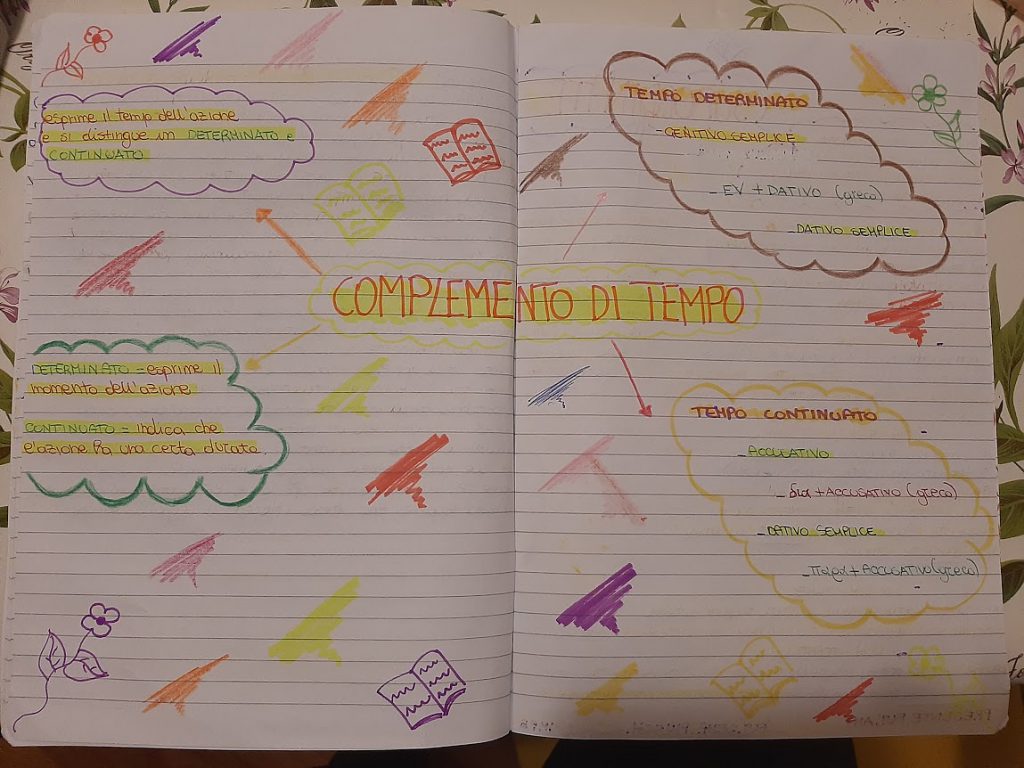 esprime il temp dell'azione
e si distingue in DETERMINATO e
CONTINUATO
COMPLEMENTO DI TEMPO
DETERMINATO = esprime il
momento dell'azione
CONTINUATO = indica che
l'azione ha una certa durata
TEMPO DETERMINATO
- GENITIVO SEMPLICE
- EV + DATIVO (greco)
- DATIVO SEMPLICE
TEMPO CONTINUATO
- ACCUSATIVO
- δια + ACCUSATIVO (greco)
- DATIVO SEMPLICE
- παρα + ACCUSATIVO (greco)